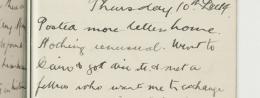 Thursday 10th Decbr.
Posted more letters home.
Nothing unusual. Went to
Cairo & got and met a
fellow who want me to exchange